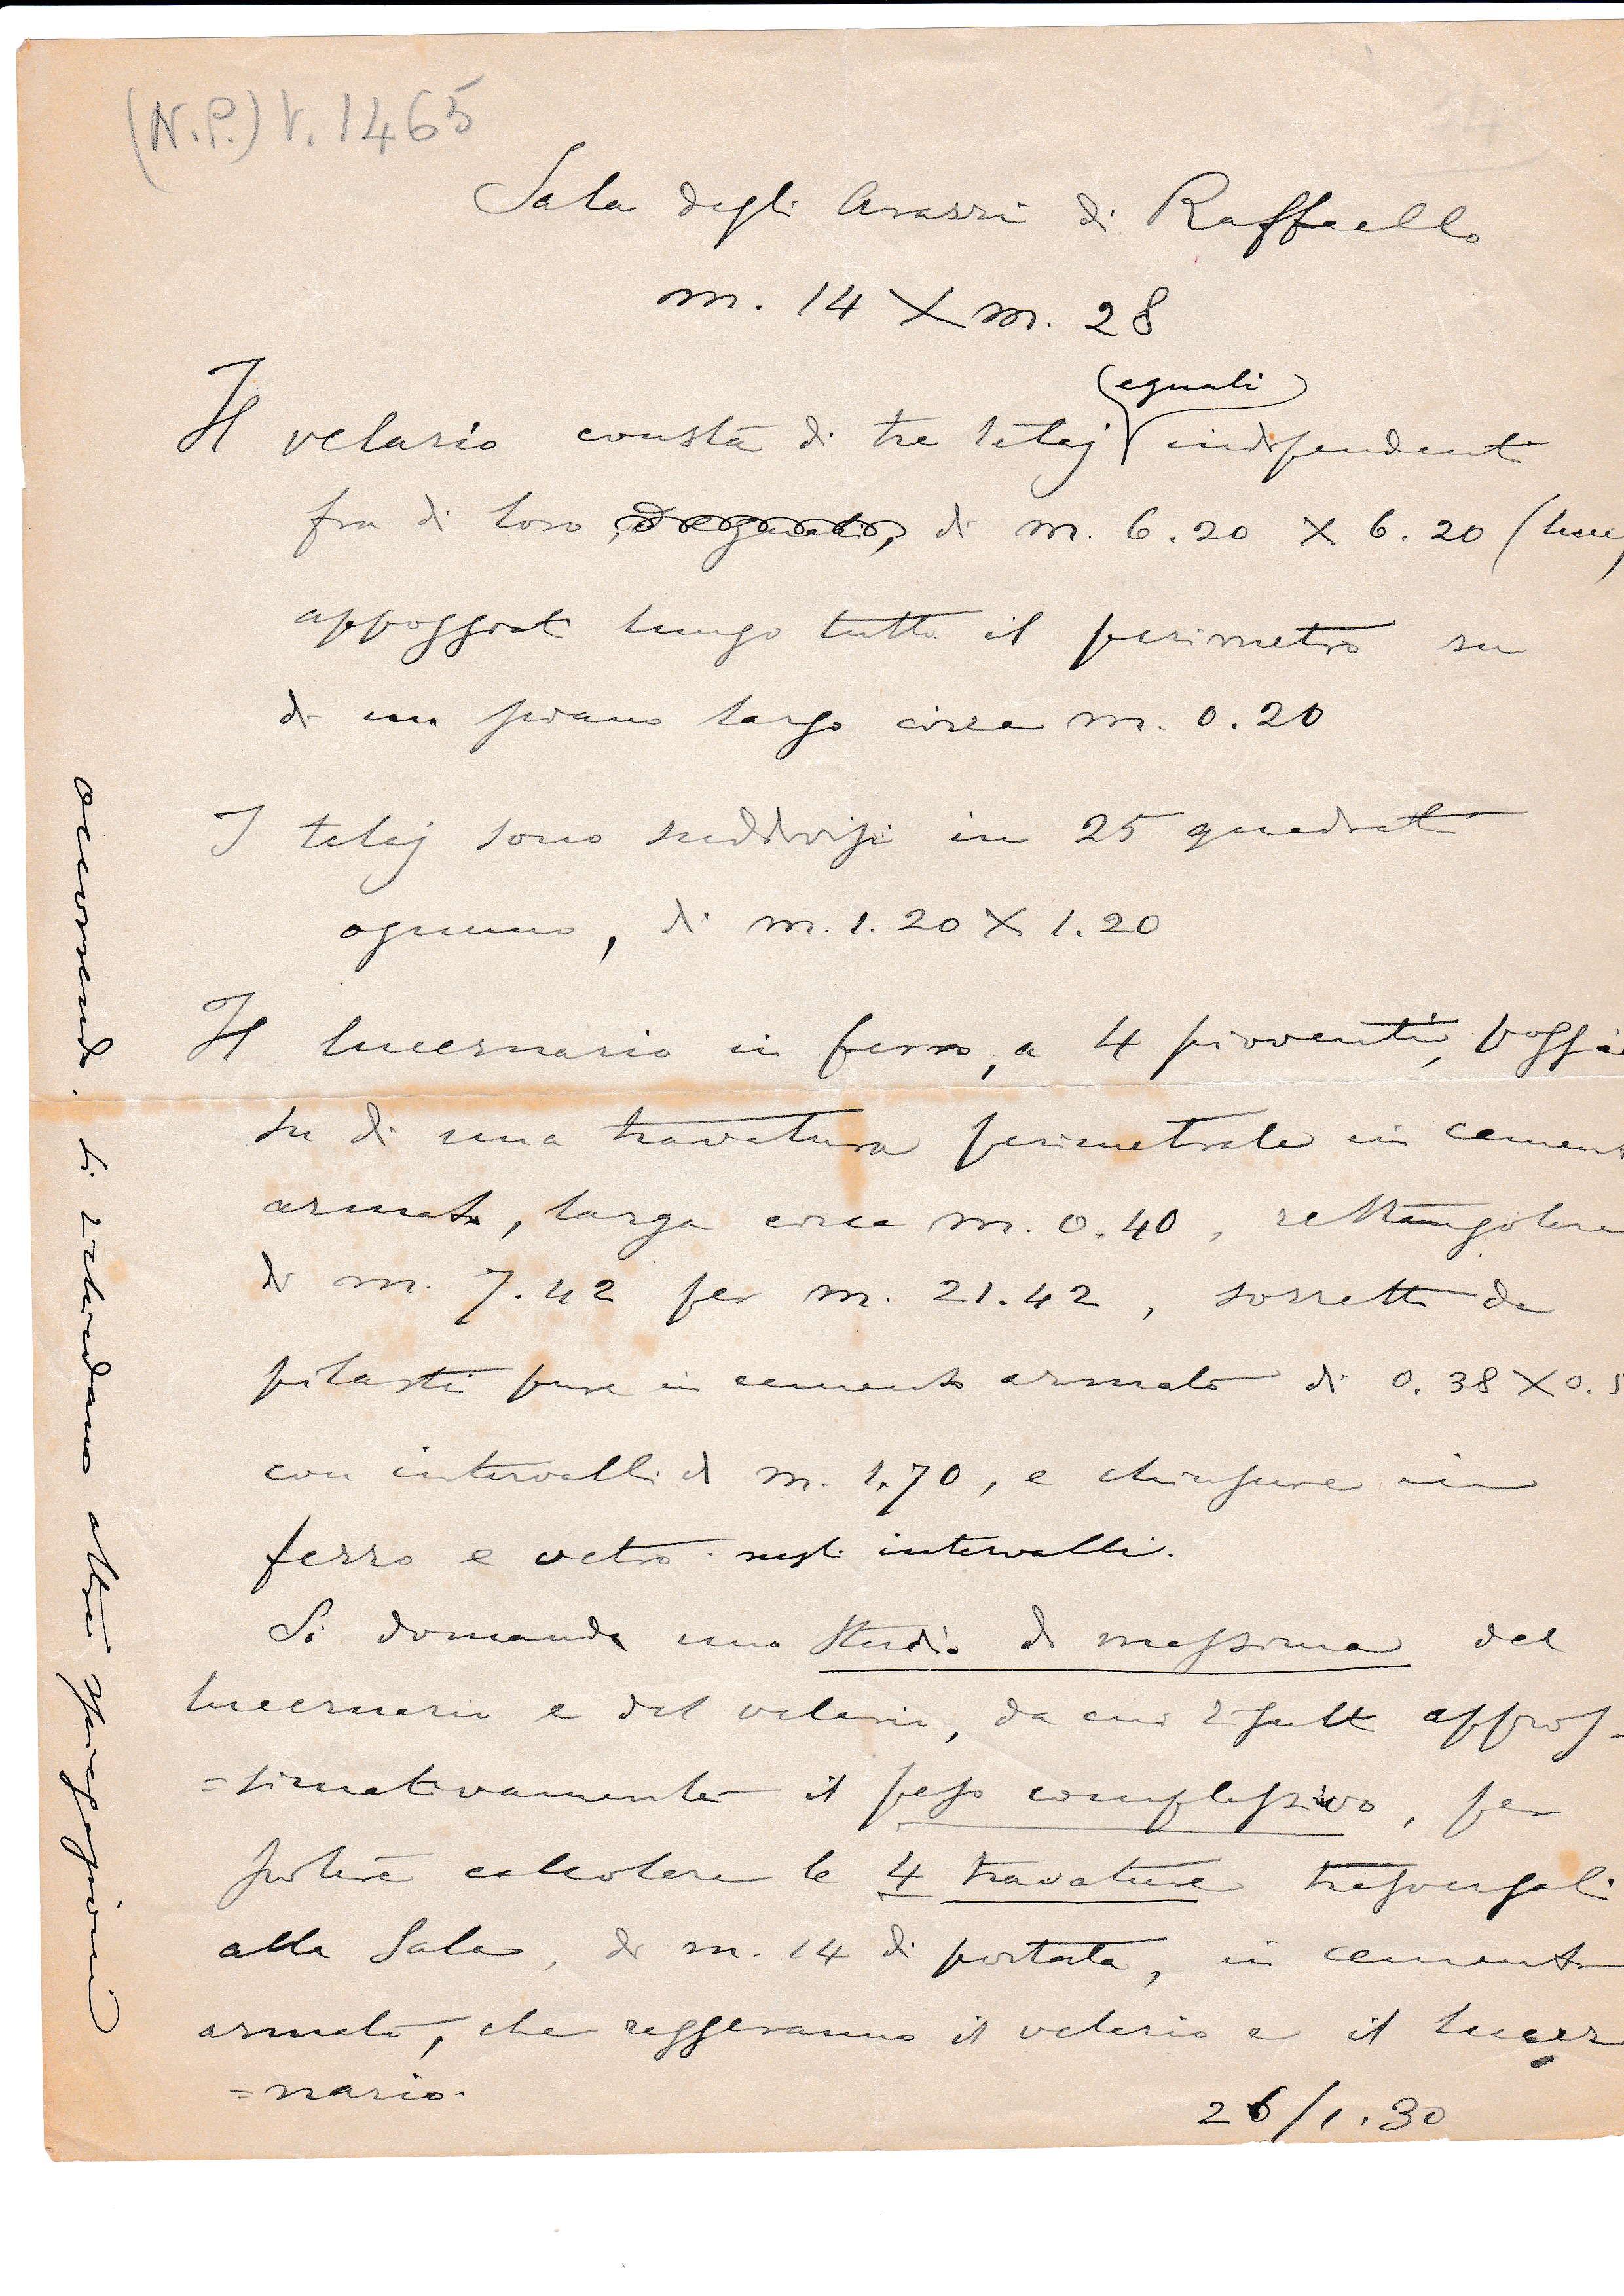 (N.P.) V. 1465
Sala degli Arazzi di Raffaello
m. 14 X m. 28
(eguali)
Il velario consta di tre telaj indipendenti
fra di loro, ed eguali, di m. 6.20 X 6.20 (luce)
appoggiati lungo tutto il perimetro su
di un piano largo circa m. 0.20
I telaj sono suddivisi in 25 quadrati
ognuno, di m. 1.20 X 1.20
Il lucernario in ferro, a 4 pioventi, poggia
su di una travatura perimetrale in cemento
armato, larga circa m. 0.40, rettangolare
di m. 7.42 per m. 21.42, sorretta da
pilastri pure in cemento armato di 0.38 X 0.5
con intervalli di m. 1.70, e chiusure in
ferro e vetro negli intervalli.
Si domanda uno studio di massima del
lucernario e del velario, da cui risulti appros-
=simativamente il peso complessivo, per
potere calcolare le 4 travature trasversali
alla Sala, di m. 14 di portata, in cemento
armato, che reggeranno il velario e il lucer
=nario.
26/1.30
occorrendo si richiedano altre spiegazioni